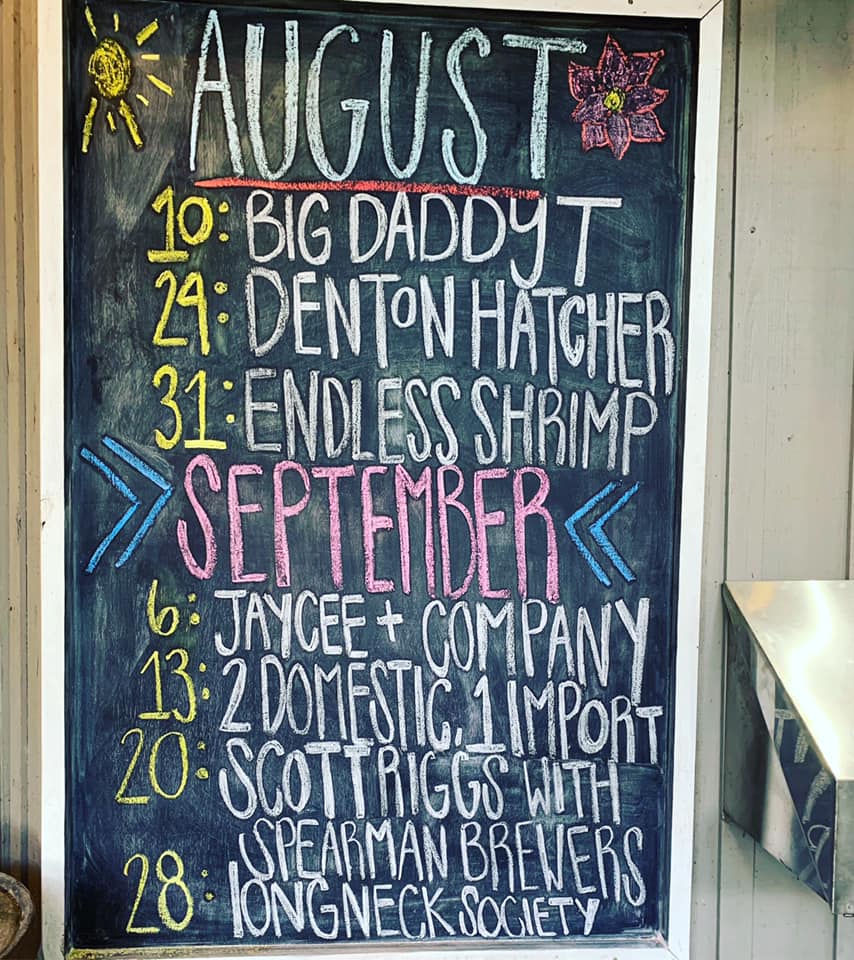 AUGUST
10: BIG DADDY T
29: DENTON HATCHER
31: ENDLESS SHRIMP
SEPTEMBER
6: JAYCEE + COMPANY
13: 2 DOMESTIC, 1 IMPORT
20: SCOTT RIGGS WITH
SPEARMAN BREWERS
28: LONGNECK SOCIETY